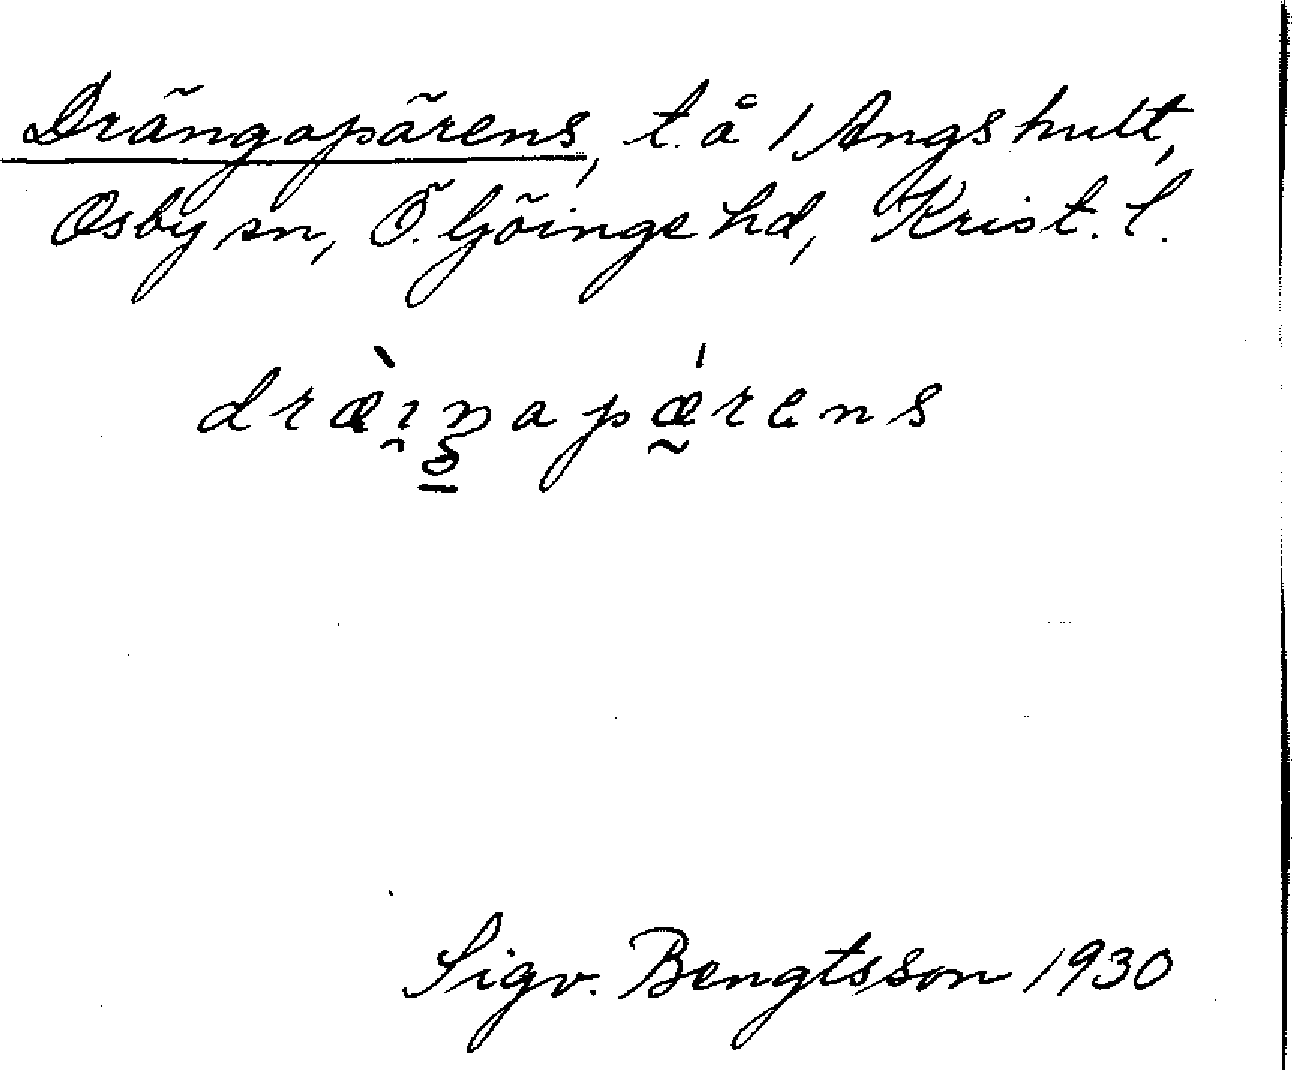 Drängapärens, t. å 1 Angshult,
Osby sn, Ö. Göinge hd, Krist. l.
dræ̀ı̯ŋapǽrens
Sigv. Bengtsson 1930